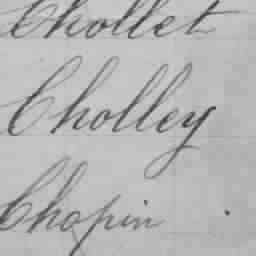 Chollet
Cholley
Chopin